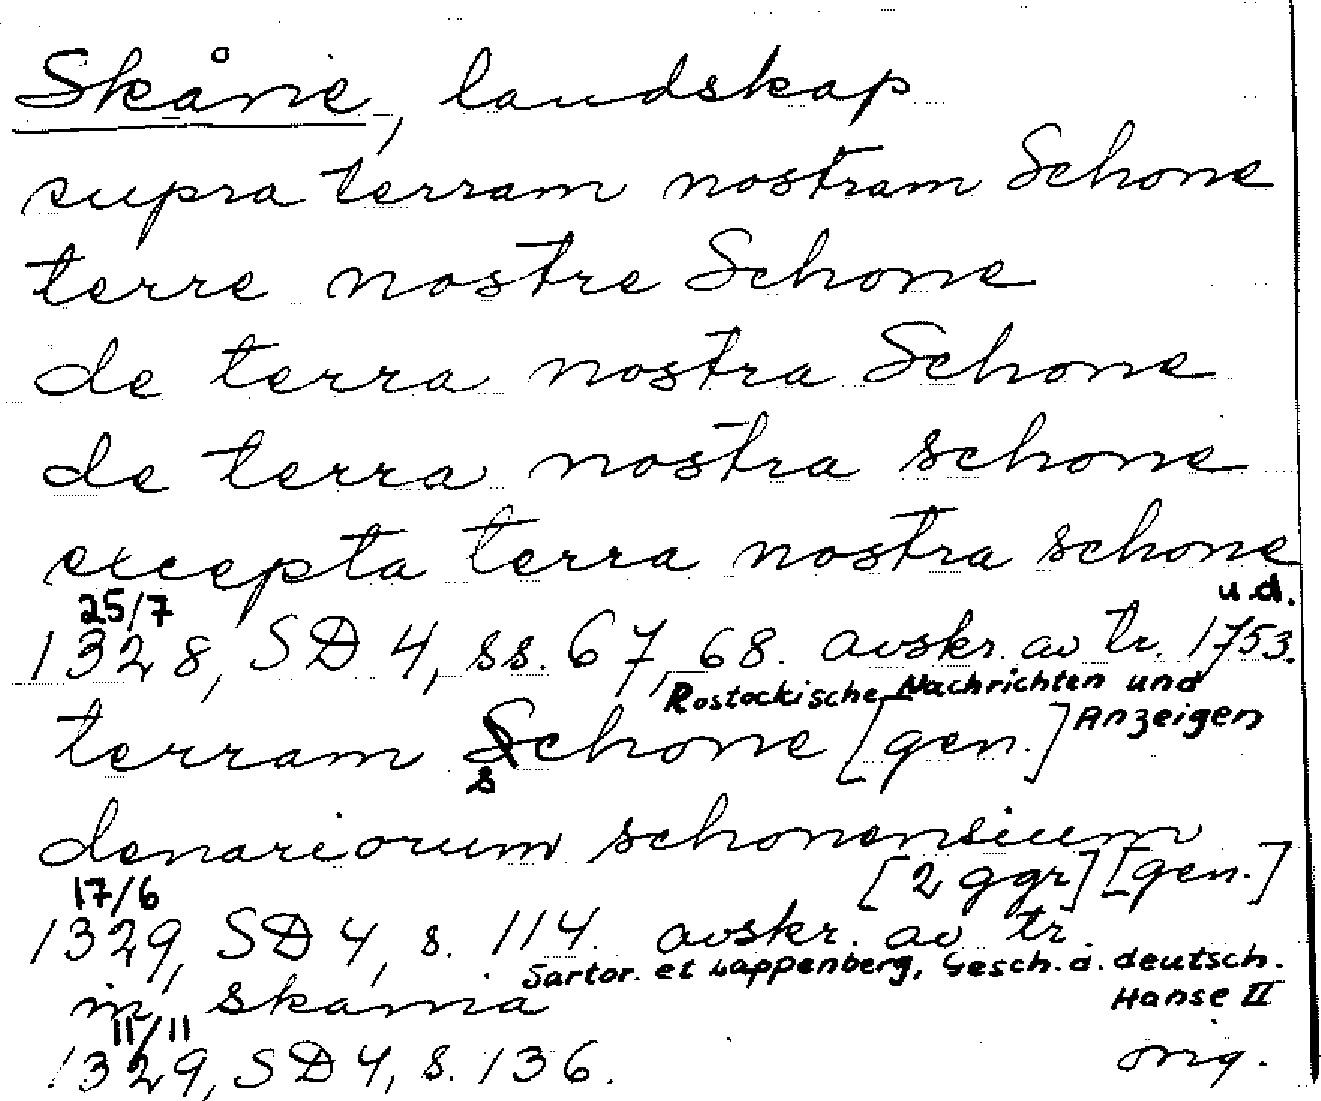 Skåne, landskap
supra terram nostram Schone
terre nostre Schone
de terra nostra Schone
de terra nostra schone
excepta terra nostra schone
25/7 u.d.
1328, SD 4, ss. 67, 68. avskr. av tr. 1753.
Rostockische Nachrichten und
Anzeigen
terram schone [gen.]
denariorum schonensium
[2 ggr] [gen.]
17/6
1329, SD 4, s. 114. avskr. av tr.
Sartor. et Lappenberg, Gesch. d. deutsch.
Hanse II
in skania
11/11
1329, SD 4, s. 136. orig.